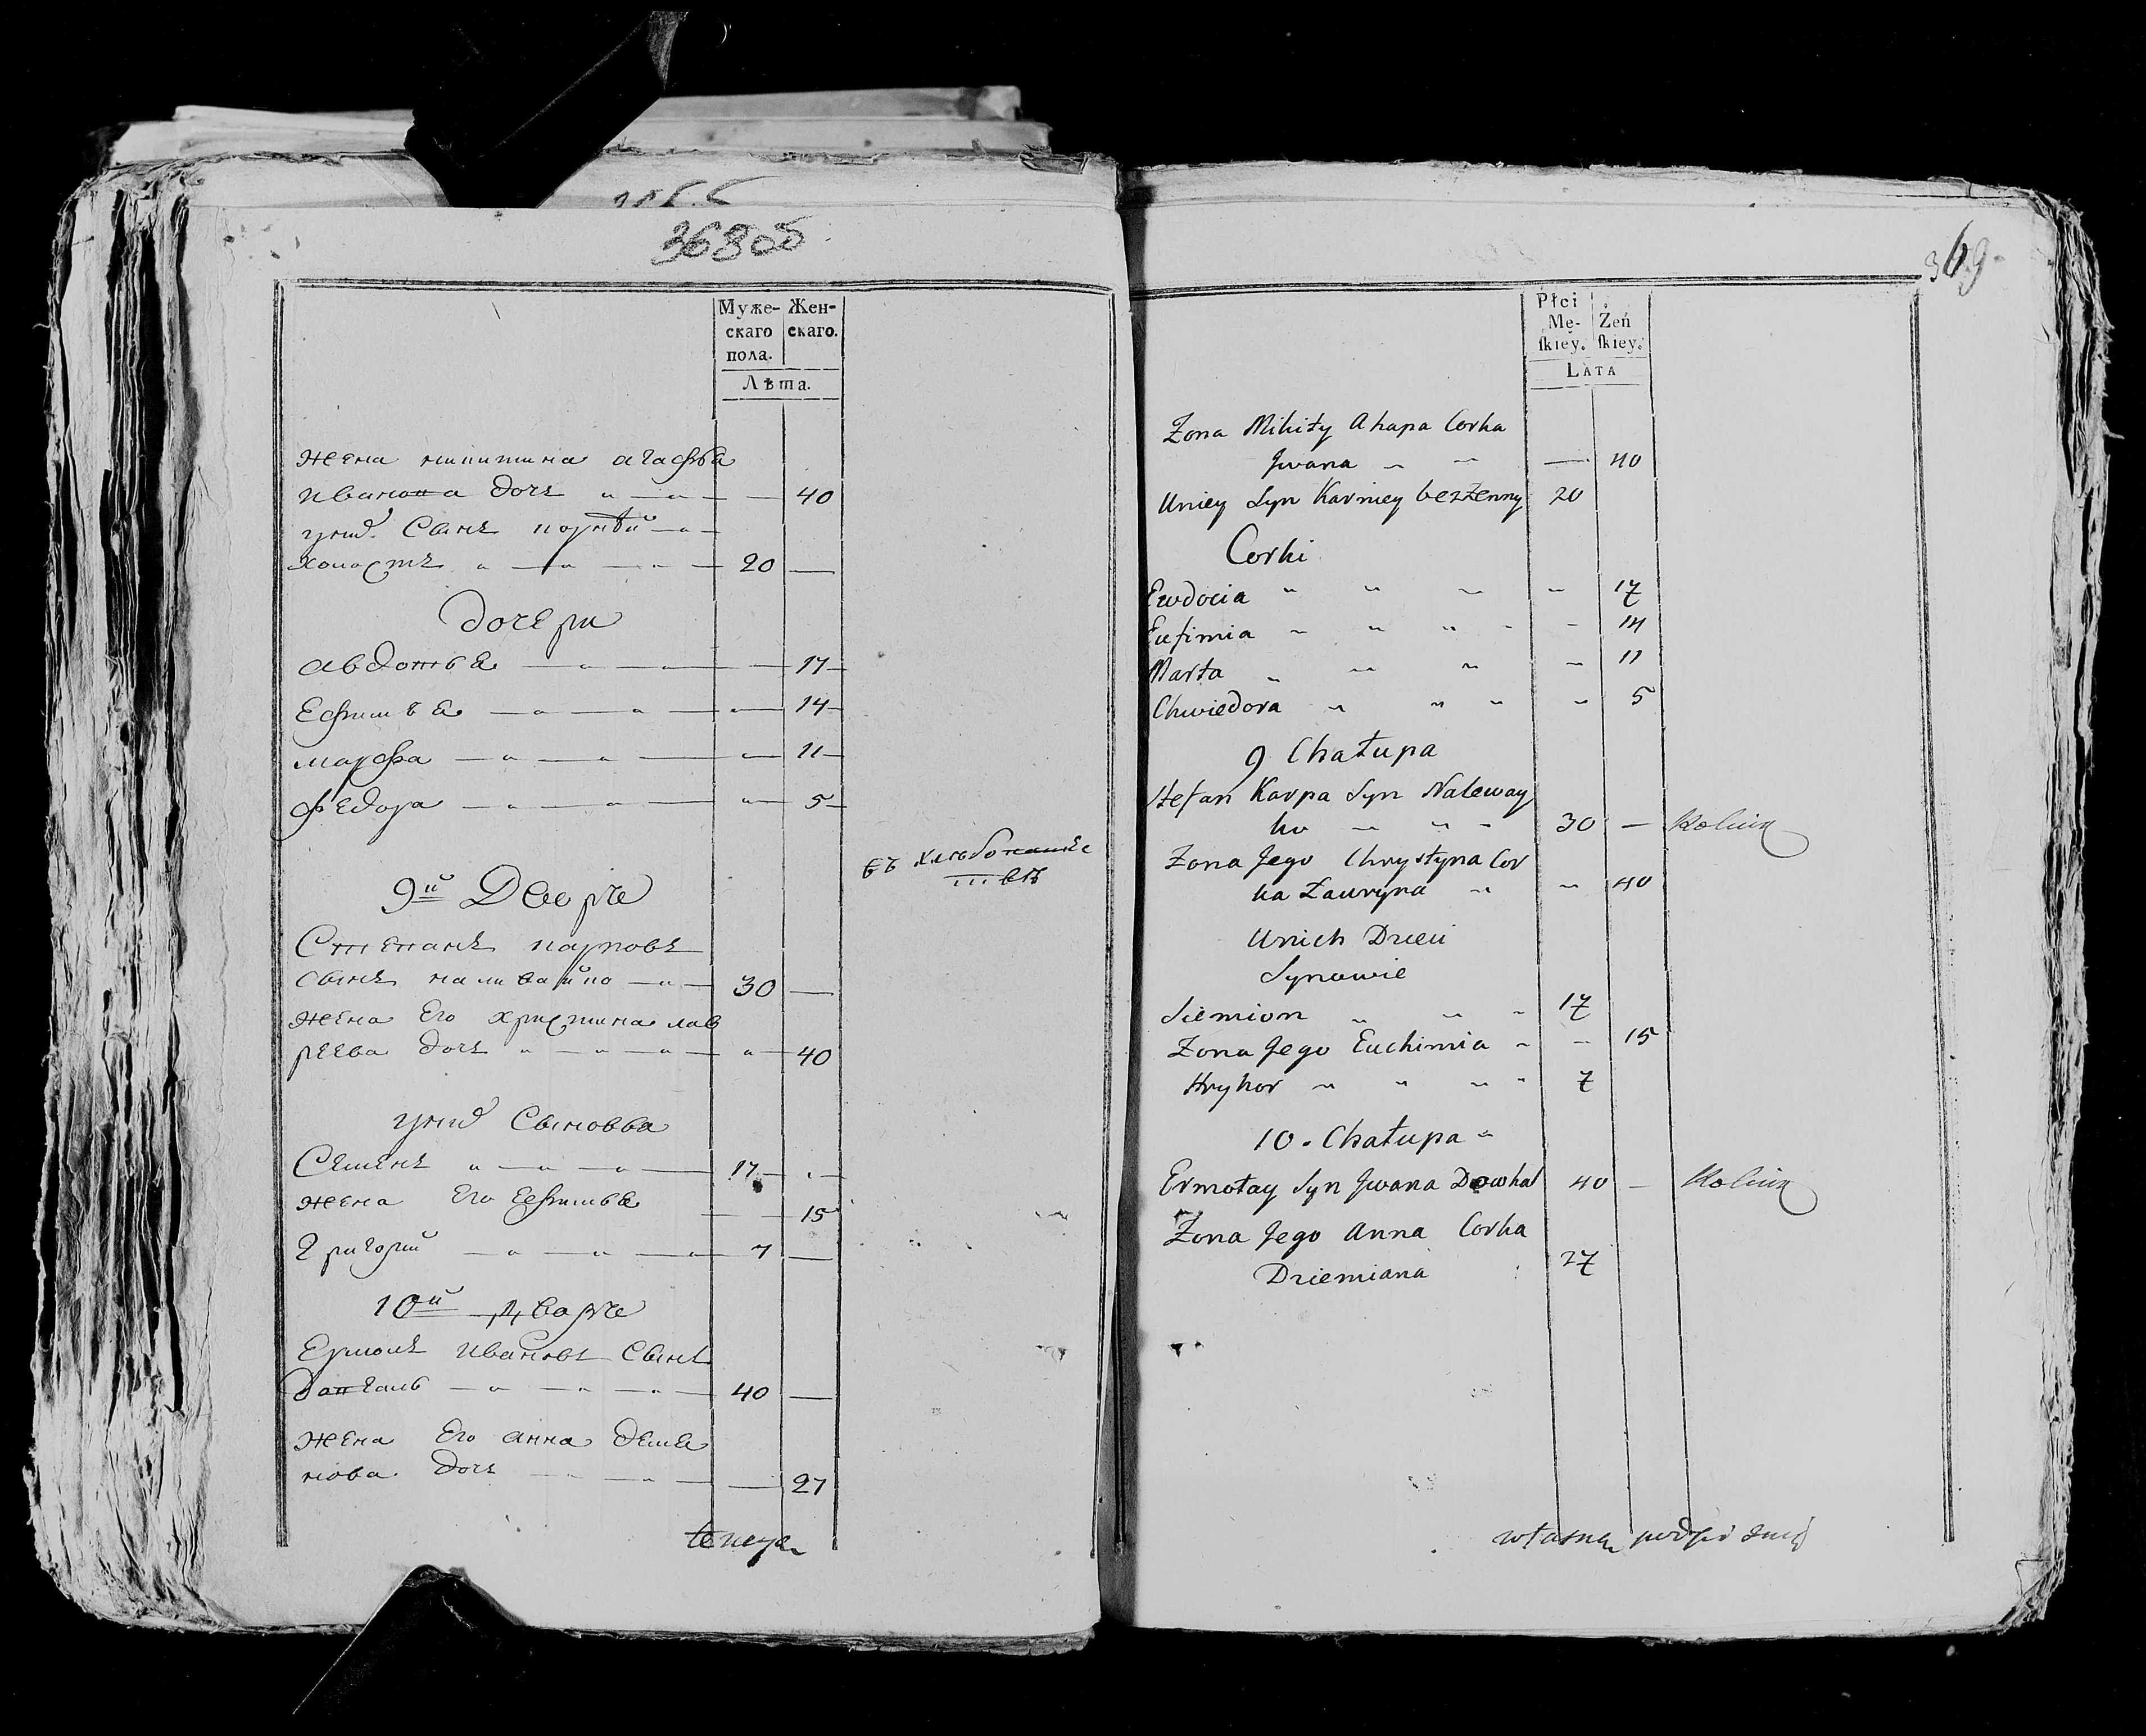 368об
Муже-
скаго
пола.
Жен-
скаго.
Лѣта.
жена никитина агафья
иванова дочь 40
уних Сынъ корнѣй
холостъ 20
дочери
авдотья 17
Ефимья 14
марфа 11
федора 5
9й Дворъ
въ хлѣбопаше
ствѣ
Степанъ карповъ
сынъ наливайко 30
жена Его христина лав
рѣева дочь 40
уних Сыновья
Семенъ 17
жена Его Ефимья 15
Григорий 7
10й дворъ
Ермолъ ивановъ Сынъ
довгаль 40
жена Его анна демья
нова дочь 27
369
Płci
Mę-
ſkiey.
Żeń
ſkiey.
LATA
Zona Mikity Ahapa Corka
Jwana 40
Uniey Syn Karniey bezżenny 20
Corki
Ewdocia 17
Eufimia 14
Marta 11
Chwiedora 5
9 Chałupa
Stefan Karpa Syn Naleway
ko 30 — Rolnik
Zona Jego Chrystyna Cor
ka Ławryna 40
Unich Dzieci
Synowie
Siemion 17
Zona Jego Euchimia 15
Hryhor 7
10. Chałupa
Ermołay Syn Jwana Dowhal 40 — Rolnik
Zona Jego Anna Corka
Dziemiana 27
własna